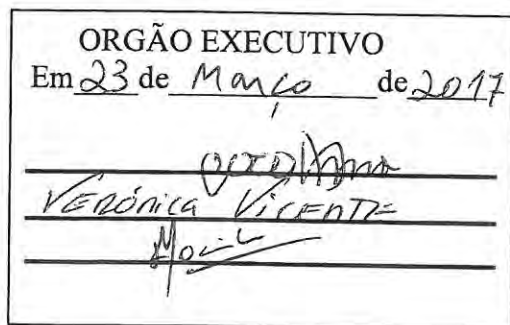 ORGÃO EXECUTIVO
Em 23 de Março de 2017
Verónica Vicente